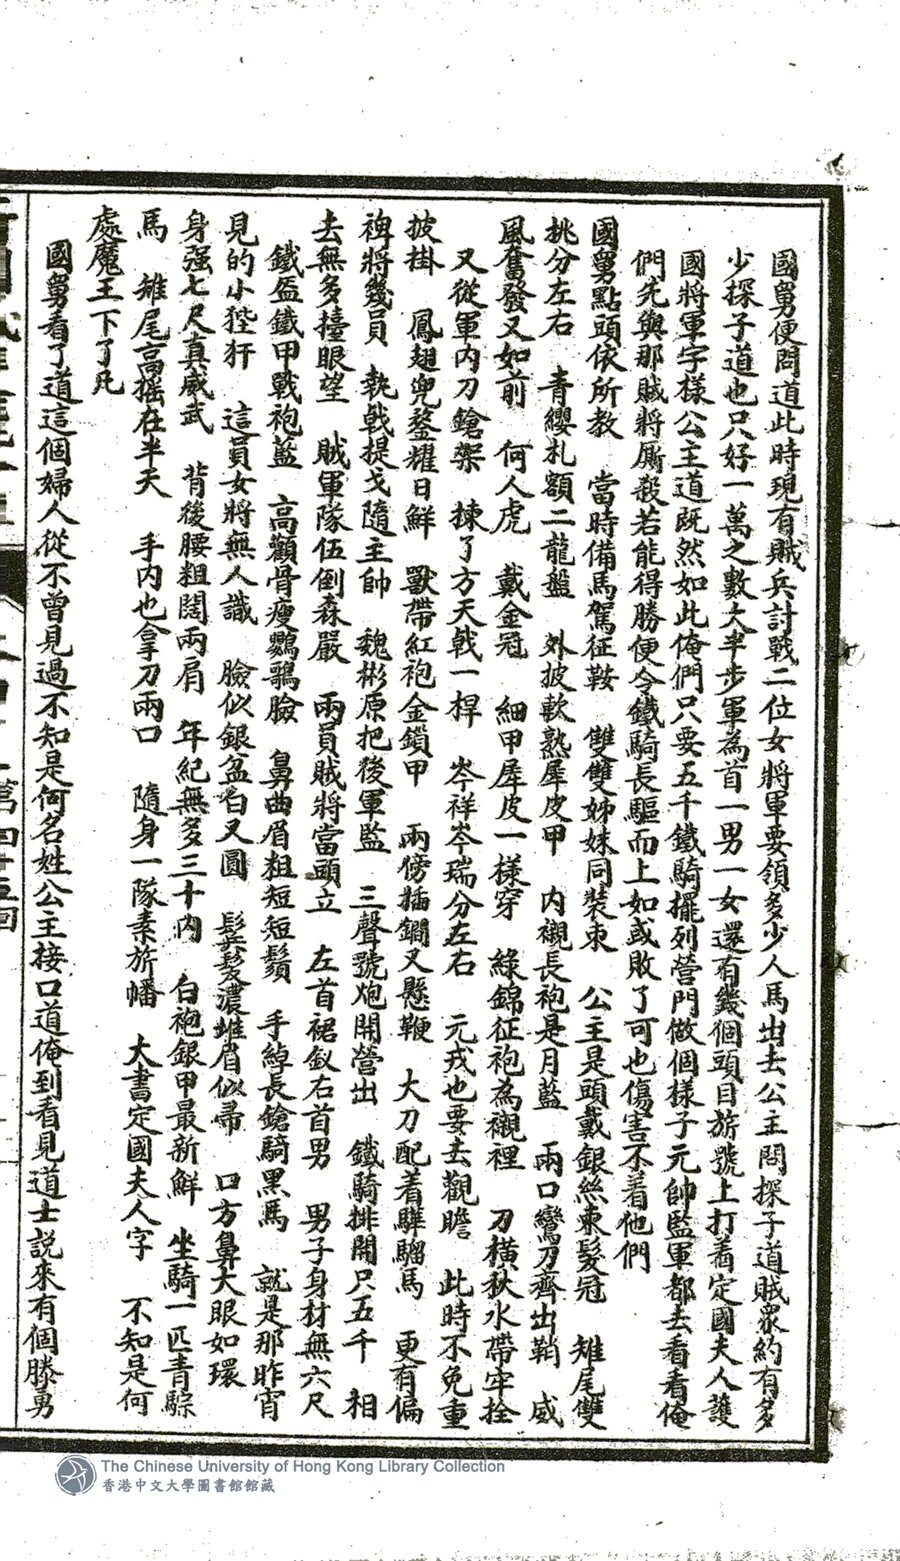 國舅便問道此時現有賊兵討戰二位女將軍要領多少人馬出去公主問探子道賊眾約有多
少探子道也只好一萬之數大半步軍為首一男一女還有幾個頭目旂號上打着定國夫人護
國將軍字樣公主道既然如此俺們只要五千鐵騎擺列營門做個樣子元帥監軍都去看看俺
們先與那賊將厮殺若能得勝便令鐵騎長驅而上如或敗了可也傷害不着他們
國舅點頭依所教　當時備馬駕征鞍　雙雙姊妹同裝束　公主是頭戴銀絲束髮冠　雉尾雙
挑分左右　青纓札額二龍盤　外披軟熟犀皮甲　內襯長袍是月藍　兩口鸞刀齊出鞘　威
風奮發又如前　何人虎　戴金冠　細甲犀皮一樣穿　綠錦征袍為襯裡　刀橫秋水帶牢拴
又從軍內刀鎗架　揀了方天戟一桿　岑祥岑瑞分左右　元戎也要去觀瞻　此時不免重
披掛　鳳翅兜鍪耀日鮮　獸帶紅袍金鎖甲　兩傍插鐧又懸鞭　大刀配着驊騮馬　更有偏
裨將幾員　執戟提戈隨主帥　魏彬原把後軍監　三聲號炮開營出　鐵騎排開只五千　相
去無多擡眼望　賊軍隊伍倒森嚴　兩員賊將當頭立　左首裙釵右首男　男子身材無六尺
鐵盔鐵甲戰袍藍　高顴骨瘦鸚鵡臉　鼻曲眉粗短短鬚　手綽長鎗騎黑馬　就是那昨宵
見的小狴犴　這員女將無人識　臉似銀盆白又圓　鬓髮濃堆眉似帚　口方鼻大眼如環
身强七尺真威武　背後腰粗闊兩肩　年紀無多三十內　白袍銀甲最新鮮　坐騎一匹青騌
馬　雉尾高搖在半天　手內也拿刀兩口　隨身一隊素旂幡　大書定國夫人字　不知是何
處魔王下了凡
國舅看了道這個婦人從不曾見過不知是何名姓公主接口道俺到看見道士說來有個滕勇
第四十五回
The Chinese University of Hong Kong Library Collection
香港中文大學圖書館館藏